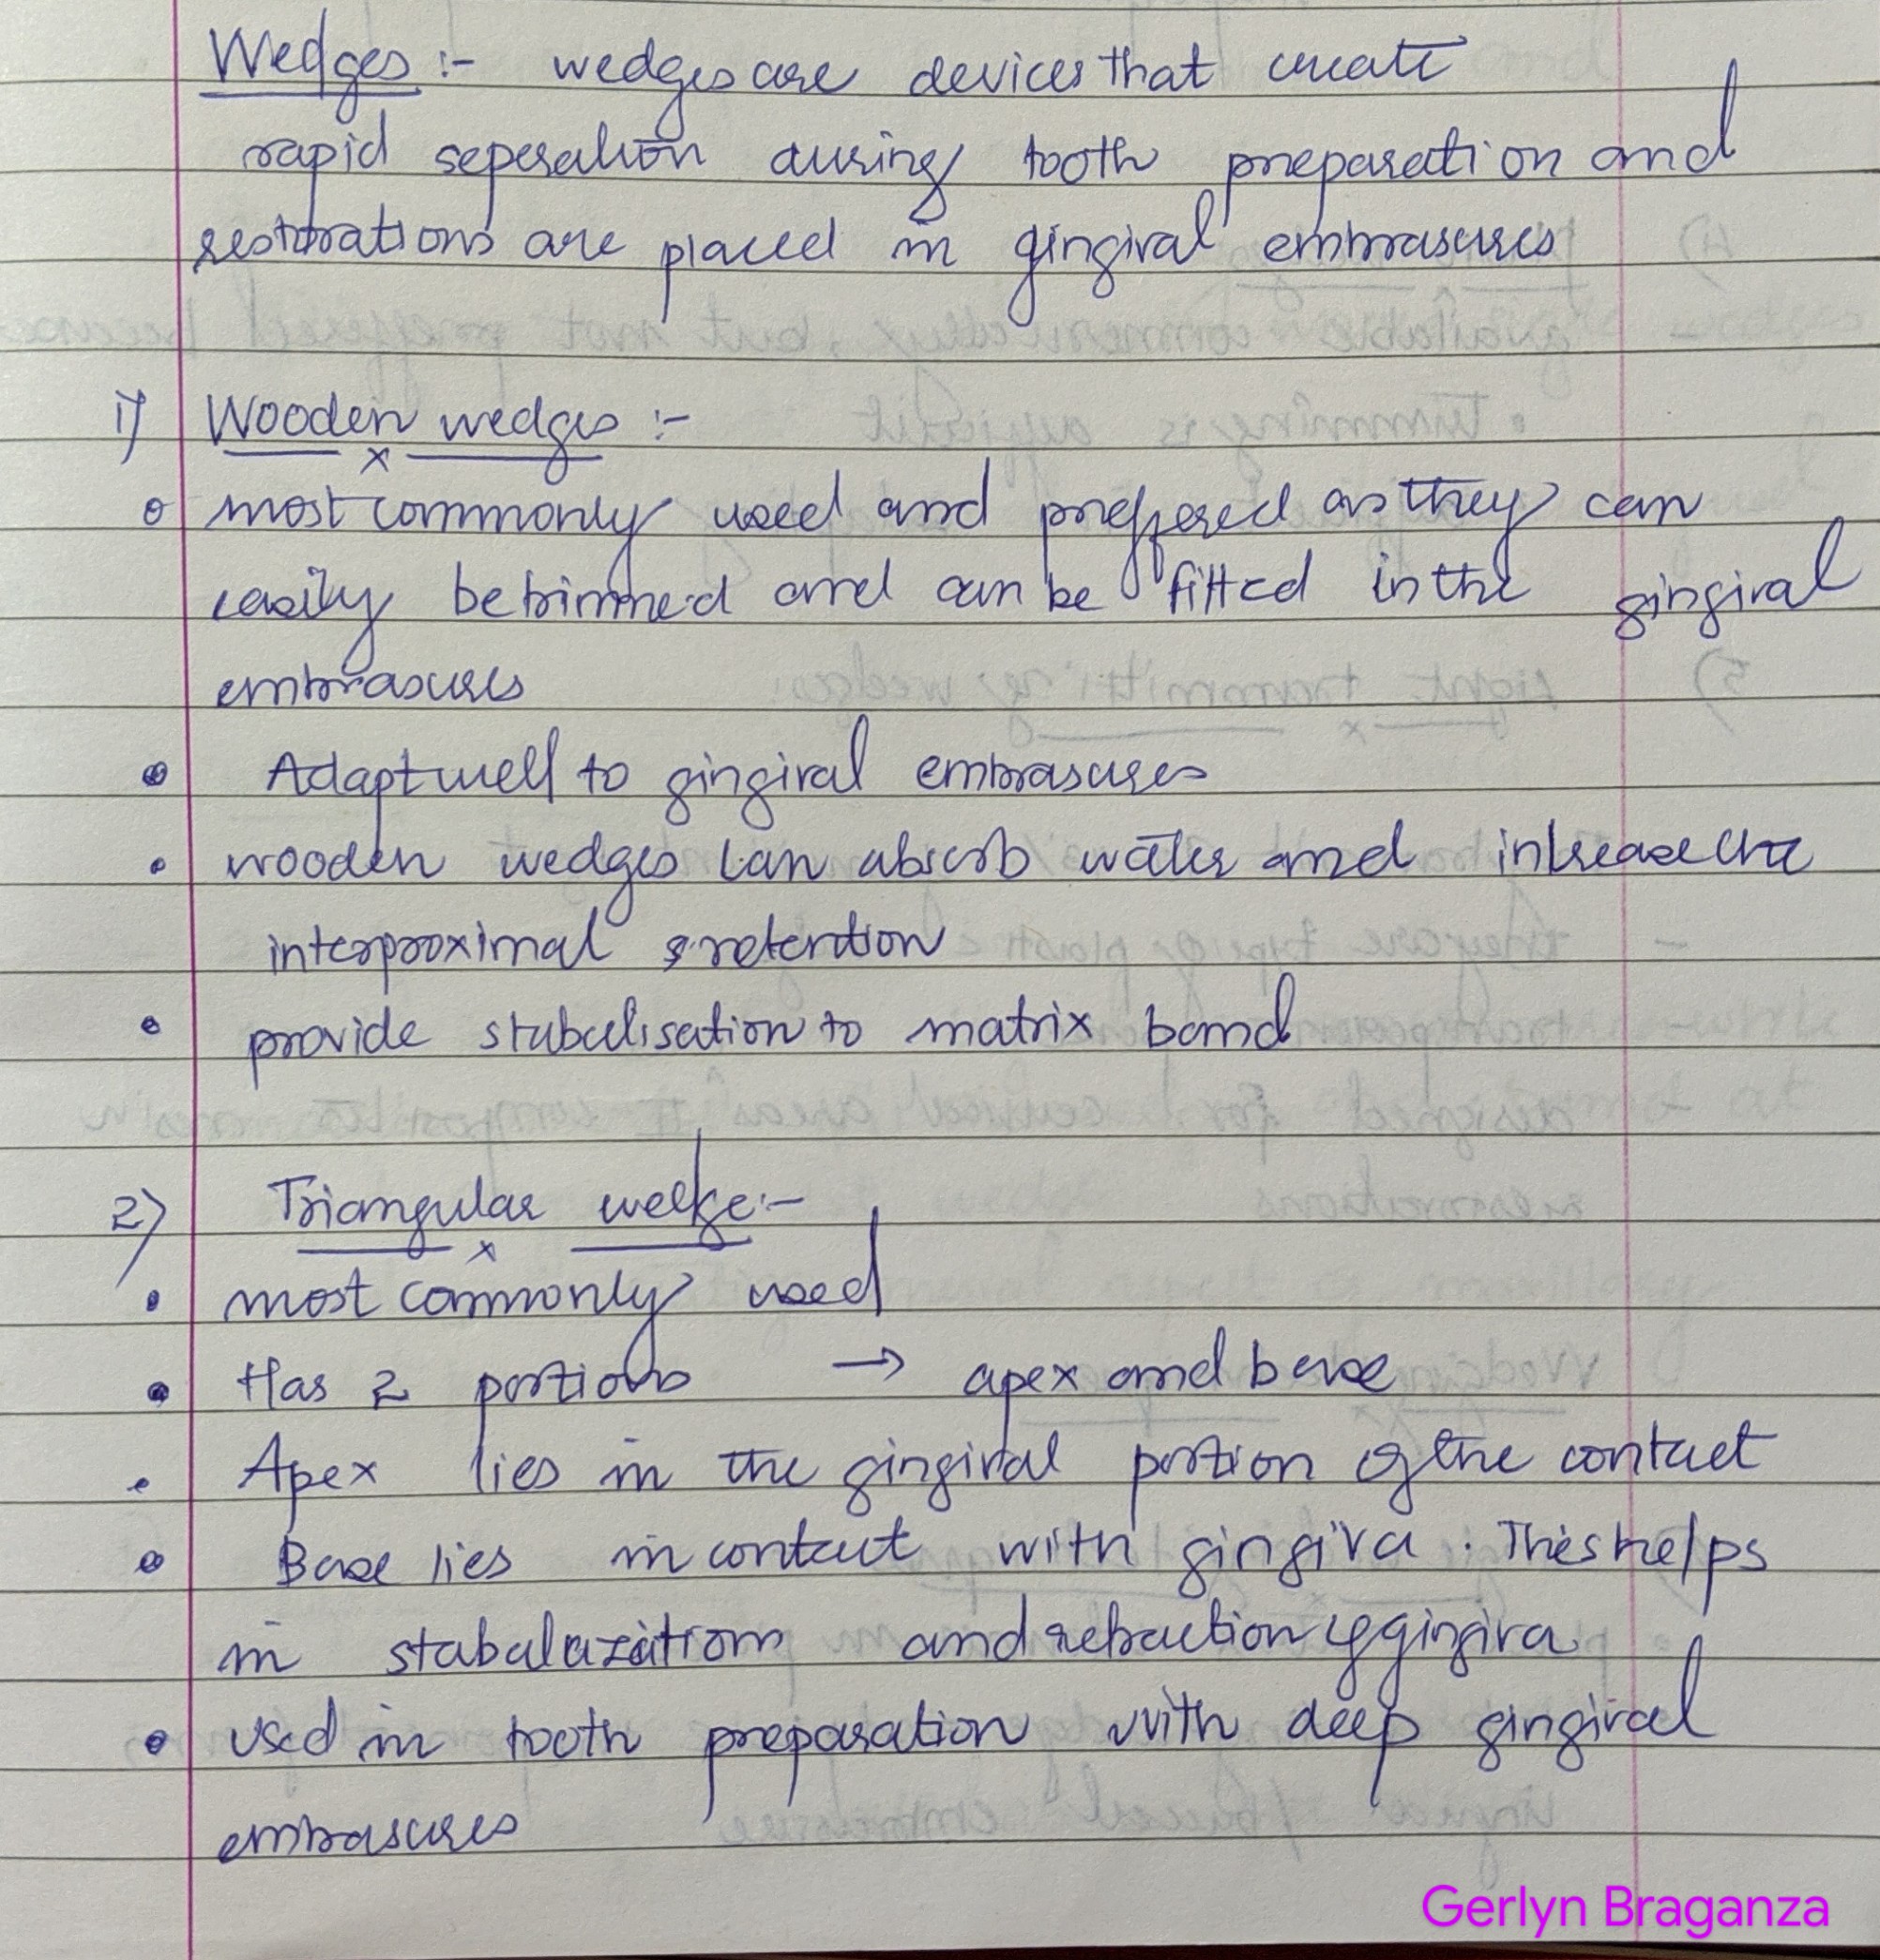 Wedges :- wedges are devices that create
rapid seperation during tooth preparation and
restorations are placed in gingival embrasures
1) Wooden wedges :-
most commonly used and preffered as they can
easily be trimmed and can be fitted in the gingival
embrasures
Adapt well to gingival embrasures
wooden wedges can absorb water and increase the
interproximal retention
provide stabalisation to matrix band
2) Triangular wedge :-
most commonly used
Has 2 portions → apex and base
Apex lies in the gingival portion of the contact
Base lies in contact with gingiva. This helps
in stabalazation and retraction of gingiva
used in tooth preparation with deep gingival
embrasures
Gerlyn Braganza